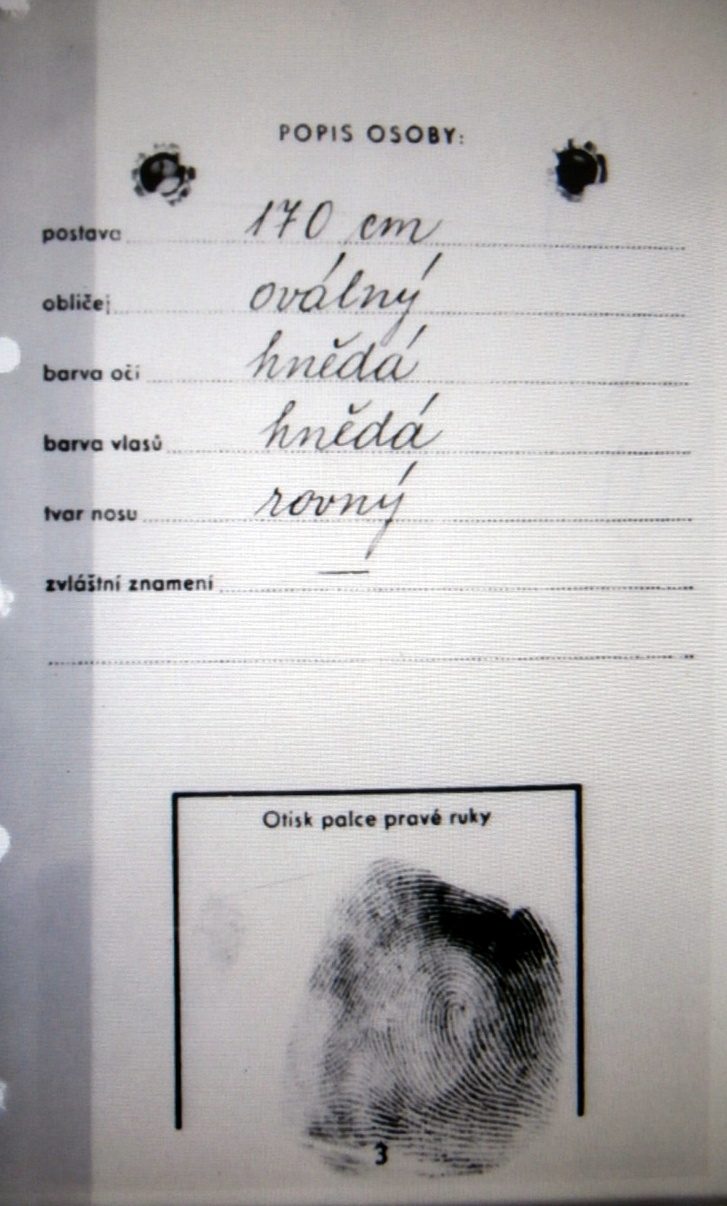 POPIS OSOBY:
postava 170 cm
obličej oválný
barva očí hnědá
barva vlasů hnědá
tvar nosu rovný
zvláštní znamení —
Otisk palce pravé ruky
3